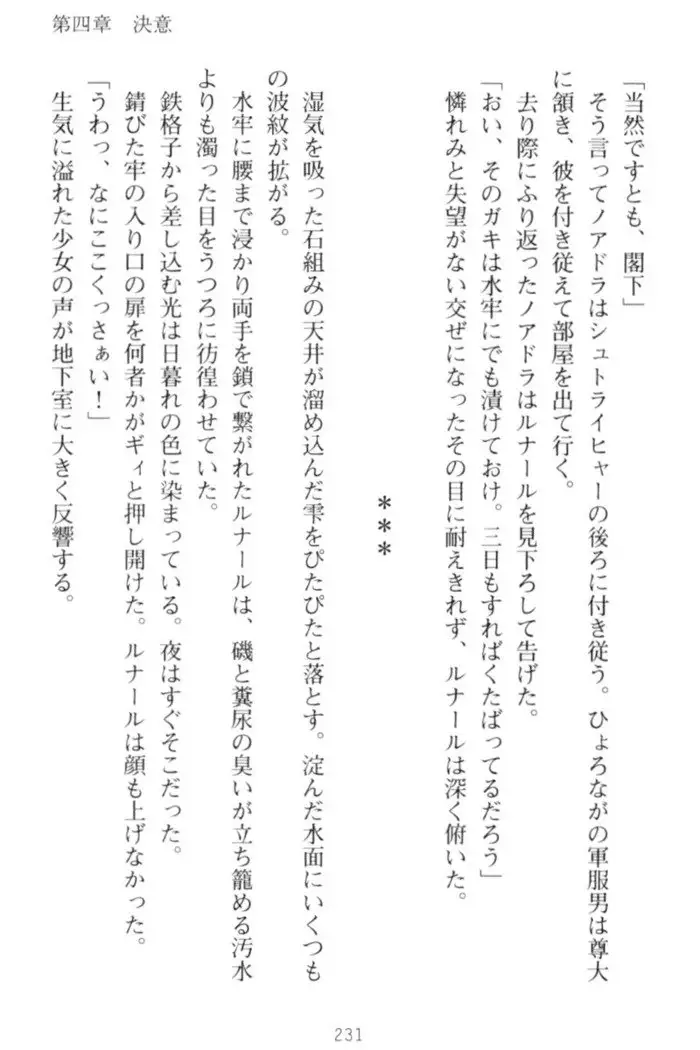 第四章　決意
「当然ですとも、閣下」
　そう言ってノアドラはシュトライヒャーの後ろに付き従う。ひょろながの軍服男は尊大
に頷き、彼を付き従えて部屋を出て行く。
　去り際にふり返ったノアドラはルナールを見下ろして告げた。
「おい、そのガキは水牢にでも漬けておけ。三日もすればくたばってるだろう」
　憐れみと失望がない交ぜになったその目に耐えきれず、ルナールは深く俯いた。
＊＊＊
　湿気を吸った石組みの天井が溜め込んだ雫をぴたぴたと落とす。淀んだ水面にいくつも
の波紋が拡がる。
　水牢に腰まで浸かり両手を鎖で繋がれたルナールは、磯と糞尿の臭いが立ち籠める汚水
よりも濁った目をうつろに彷徨わせていた。
　鉄格子から差し込む光は日暮れの色に染まっている。夜はすぐそこだった。
　錆びた牢の入り口の扉を何者かがギィと押し開けた。ルナールは顔も上げなかった。
「うわっ、なにここくっさぁい！」
　生気に溢れた少女の声が地下室に大きく反響する。
231